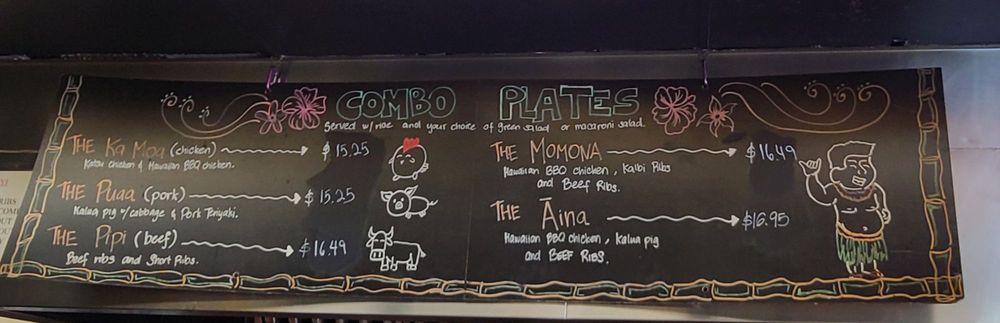 COMBO PLATES
Served w/ rice and your choice of green salad or macaroni salad.
THE Ka Moa (chicken) $15.25
Katsu chicken & Hawaiian BBQ chicken.
THE Puaa (pork) $15.25
Kalua pig w/cabbage & Pork Teriyaki.
THE Pipi (beef) $16.49
Beef ribs and Short Ribs.
THE MOMONA $16.49
Hawaiian BBQ chicken, Kalbi Ribs
and Beef Ribs.
THE Āina $16.95
Hawaiian BBQ chicken, Kalua pig
and BEEF RIBS.